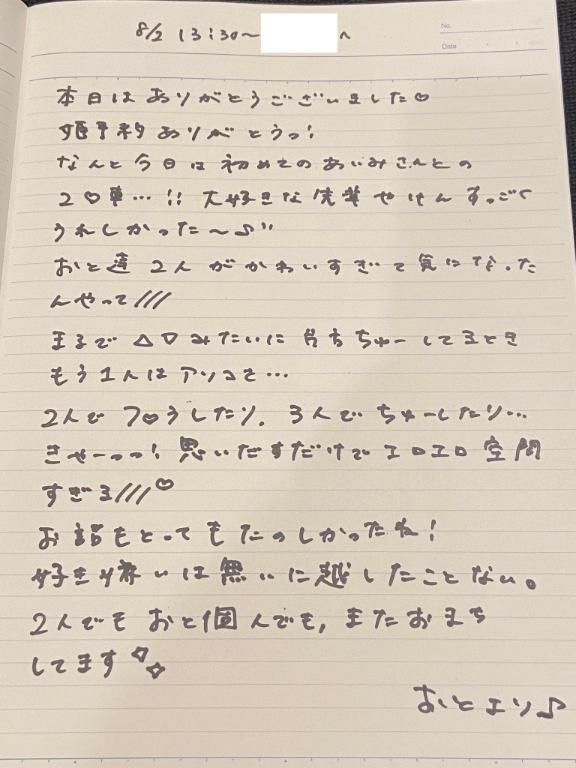 8/2 13:30〜 へ
No.
Date
本日はありがとうございました♡
姫予約ありがとうっ!
なんと今日は初めてのあいみさんとの
2♡車…!! 大好きな先輩やけんすっごく
うれしかった〜♪"
おと達2人がかわいすぎて気になった
んやって///
まるで△▽みたいに片方ちゅーしてるとき
もう1人はアソコを…
2人でフ○うしたり、3人でちゅーしたり…
きゃーっっ! 思いだすだけでエロエロ空間
すぎる///♡
お話もとってもたのしかったね!
好き嫌いは無いに越したことない。
2人でもおと個人でも、またおまち
してます✧✧
おとエリ♪